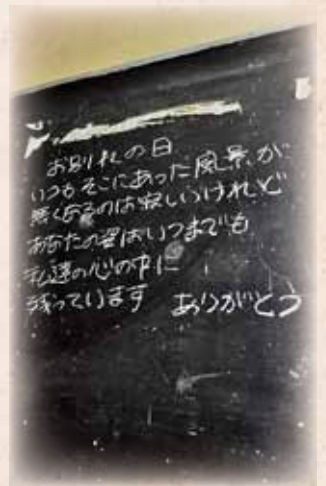 お別れの日
いつもそこにあった風景が
無くなるのは寂しいけれど
あなたの姿はいつまでも
私達の心の中に
残っています ありがとう